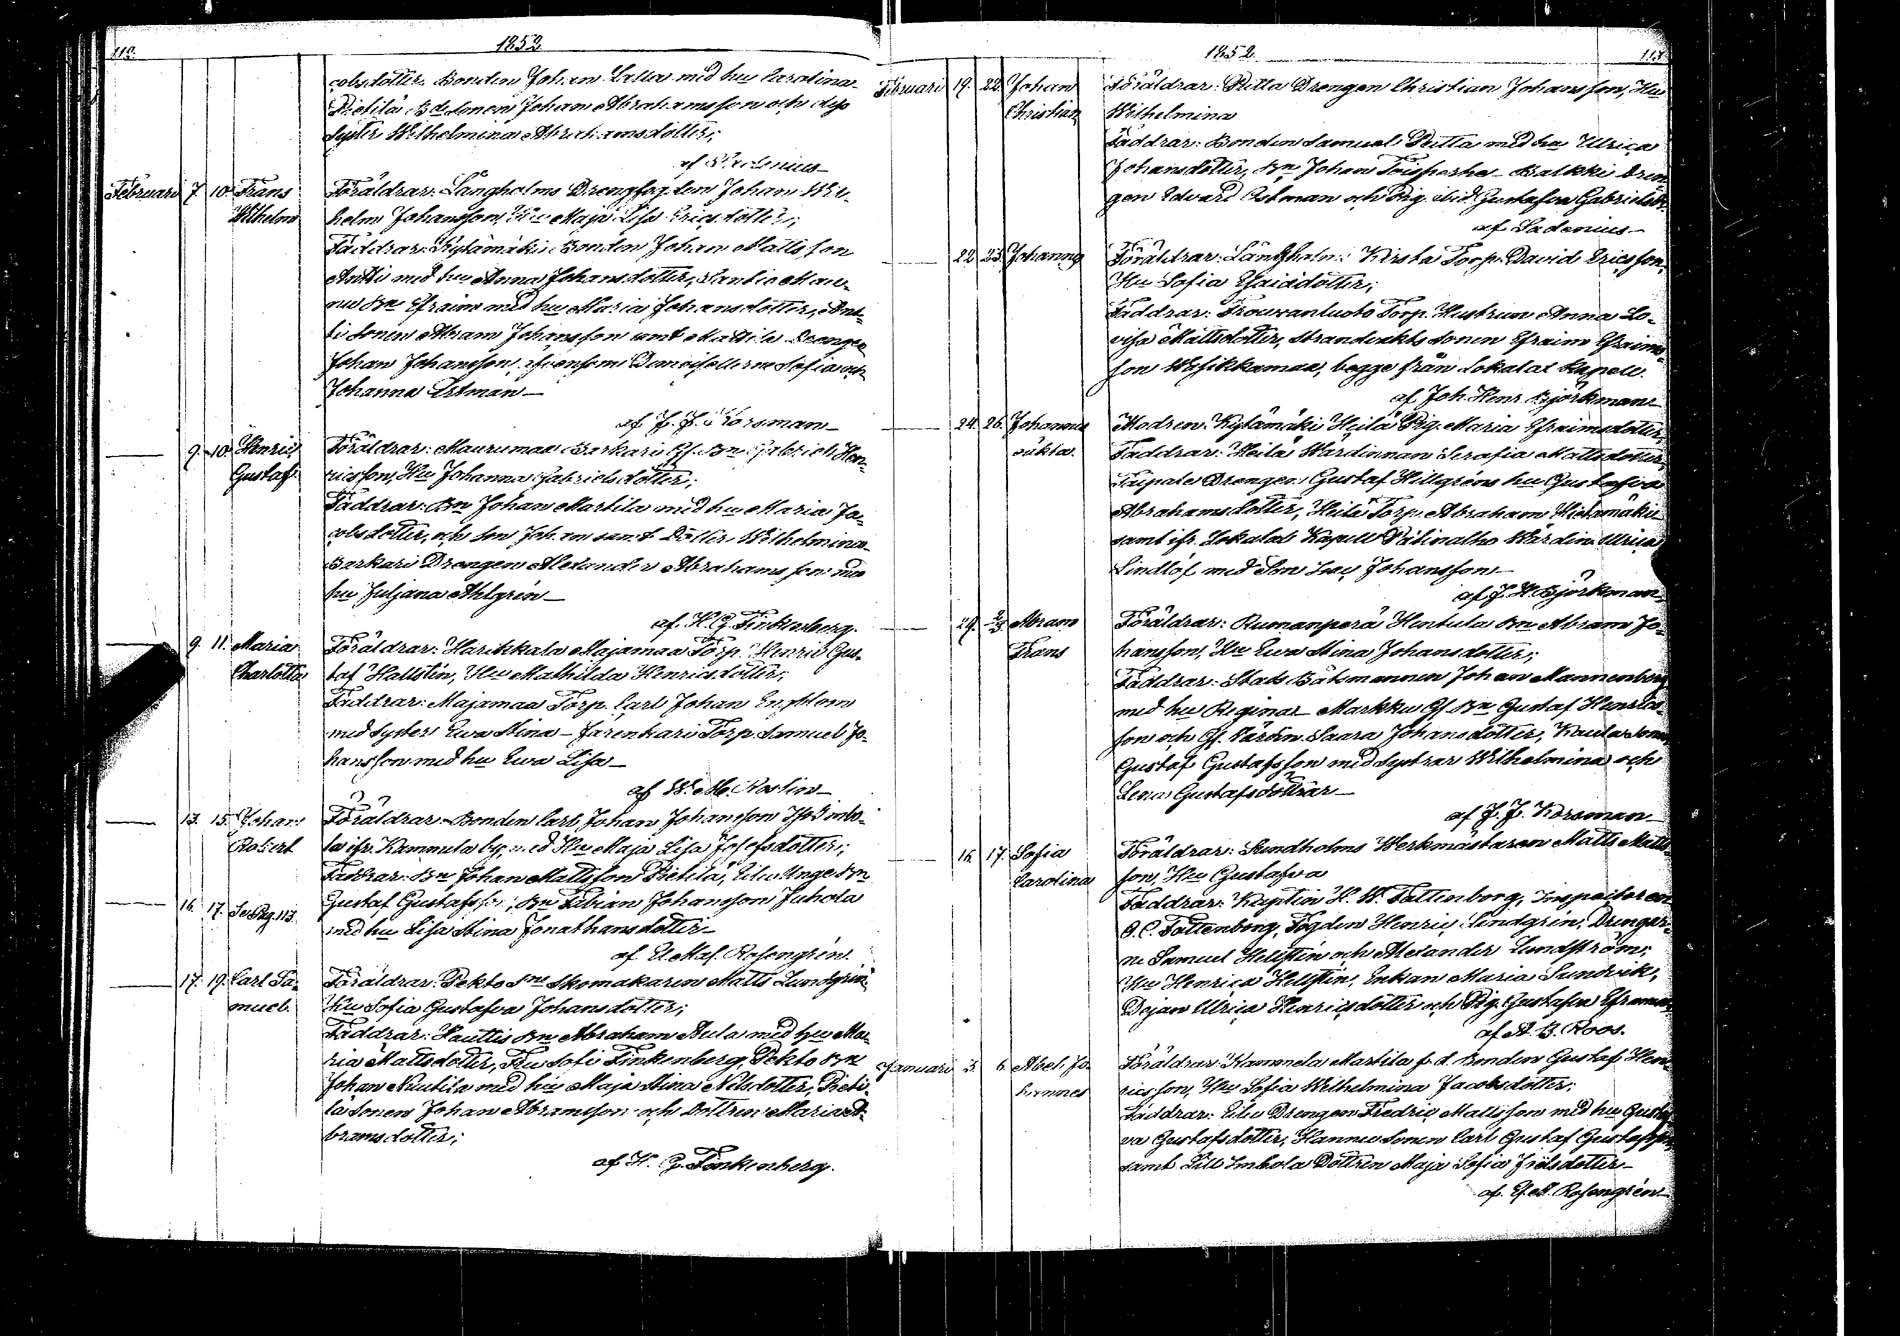 112.
1852
cobsdotter Bonden Johan Lalla med hu Carolina
Pietilä Bdesonen Johan Abrahamsson och dess
syster Wilhelmina Abrahamsdotter;
af
Februari 7. 10. Frans Wilhelm
Föräldrar: Långholms Drengfogden Johan Wil-
helm Johansson, Hu Maja Lisa Ericsdotter;
Faddrar: Kylämäki Bonden Johan Mattsson
Antti med hu Anna Johansdotter,
Bn Efraim med hu Maria Johansdotter, Ant-
ti sonen Abram Johansson samt Mattila Drengen
Johan Johansson, Demoisellerne Sofia och
Johanna Östman
af J. J. Korsman
9. 10. Henric Gustaf
Föräldrar: Maurumaa Barkari Bn Gabriel Hen-
ricsson, Hu Johanna Gabrielsdotter;
Faddrar: Bn Johan Martila med hu Maria Ja-
cobsdotter, och son Johan samt Dotter Wilhelmina
Barkari Drengen Alexander Abrahamsson med
hu Juljana Ahlgrén
af H. G. Finkenberg.
9. 11. Maria Charlotta
Föräldrar: Harikkala Majamaa Torp. Henric Gus-
taf Hallstén, Hu Mathilda Henricsdotter;
Faddrar: Majamaa Torp. Carl Johan Engblom
med syster Ewa Stina Jarenkari Torp. Samuel Jo-
hansson med hu Ewa Lisa
af W. M. Roslin
13. 15. Johan Robert
Föräldrar: Bonden Carl Johan Johansson
ifr. Kammela by, med Hu Maja Lisa Josefsdotter;
Faddrar: Bn Johan Mattsson Pietilä, Unge Bn
16. 17. Se Pag. 113
Gustaf Gustafsson, Bn Fabian Johansson Juhola
med hu Lisa Stina Jonathansdotter
af El. Mat. Rosengrén.
17. 19. Carl Samuel.
Föräldrar: Pekto Skomakaren Matts Lundgrén,
Hu Sofia Gustafva Johansdotter;
Faddrar: Bn Abraham Aula med hu Ma-
ria Mattsdotter, Fru Sofi Finkenberg, Pekto Bn
Johan med hu Maja Stina Nilsdotter, Pieti-
lä sonen Johan Abramsson och Dottren Maria A-
bramsdotter;
af H. G. Finkenberg.
1852
113.
Februari 19. 22. Johan Christian
Föräldrar: Drengen Christian Johansson, Hu
Wilhelmina
Faddrar: Bonden Samuel med hu Ulrica
Johansdotter, Bn Johan Balkki Dren-
gen Edvard Östman och Pig. ibid. Gustafva Gabrielsdr.
af Sadenius
22. 23. Johannes
Föräldrar: Långholms Kirsta Torp. David Ericsson,
Hu Sofia Esaiædotter;
Faddrar: Torp. Hustrun Anna Lo-
visa Mattsdotter, strandvakts sonen Efraim Efraims-
son begge från Lokalax Kapell.
af Joh. Henr. Björkman
24. 26. Johannes oäkta
Modren: Kylämäki Heilä Pig. Maria Efraimsdotter
Faddrar: Heilä Wärdinnan Serafia Mattsdotter,
Drengen Gustaf Hillgréns hu Gustafva
Abrahamsdotter, Heilä Torp. Abraham
samt ifr. Lokalax Kapell Wärdin. Ulrica
Lindlöf med Son Isac Johansson
af J. H. Björkman
29. 2/3 Abram Frans
Föräldrar: Rumanperä Hentula Bn Abram Jo-
hansson, Hu Ewa Stina Johansdotter;
Faddrar: Stads Båtsmannen Johan Mannenberg
med hu Regina Markku Bn Gustaf Henrics-
son och Wärdin. Saara Johansdotter, sonen
Gustaf Gustafsson med systrar Wilhelmina och
Lena Gustafsdöttrar
af J. J. Korsman
16. 17. Sofia Carolina
Föräldrar: Sundholms Werkmästaren Matts Matts-
son, Hu Gustafva
Faddrar: Kapten H. W. Tottenborg, Inspectoren
G. C. Tottenborg, Fogden Henric Lindgrén, Drengar-
ne Samuel Hellstén och Alexander Lundström;
Hu Henrica Hellstén, Enkan Maria Sundvik,
Dejan Ulrica Henricsdotter och Pig. Gustafva
af A. G. Roos.
Januari 3. 6. Abel Johannes
Föräldrar: Kammela Martila f.d. Bonden Gustaf Hen-
ricsson, Hu Sofia Wilhelmina Jacobsdotter;
Faddrar: Drengen Fredric Mattsson med hu Gustaf-
va Gustafsdotter, Hannu sonen Carl Gustaf Gustafsson,
samt Dottren Maja Sofia
af E. M. Rosengrén